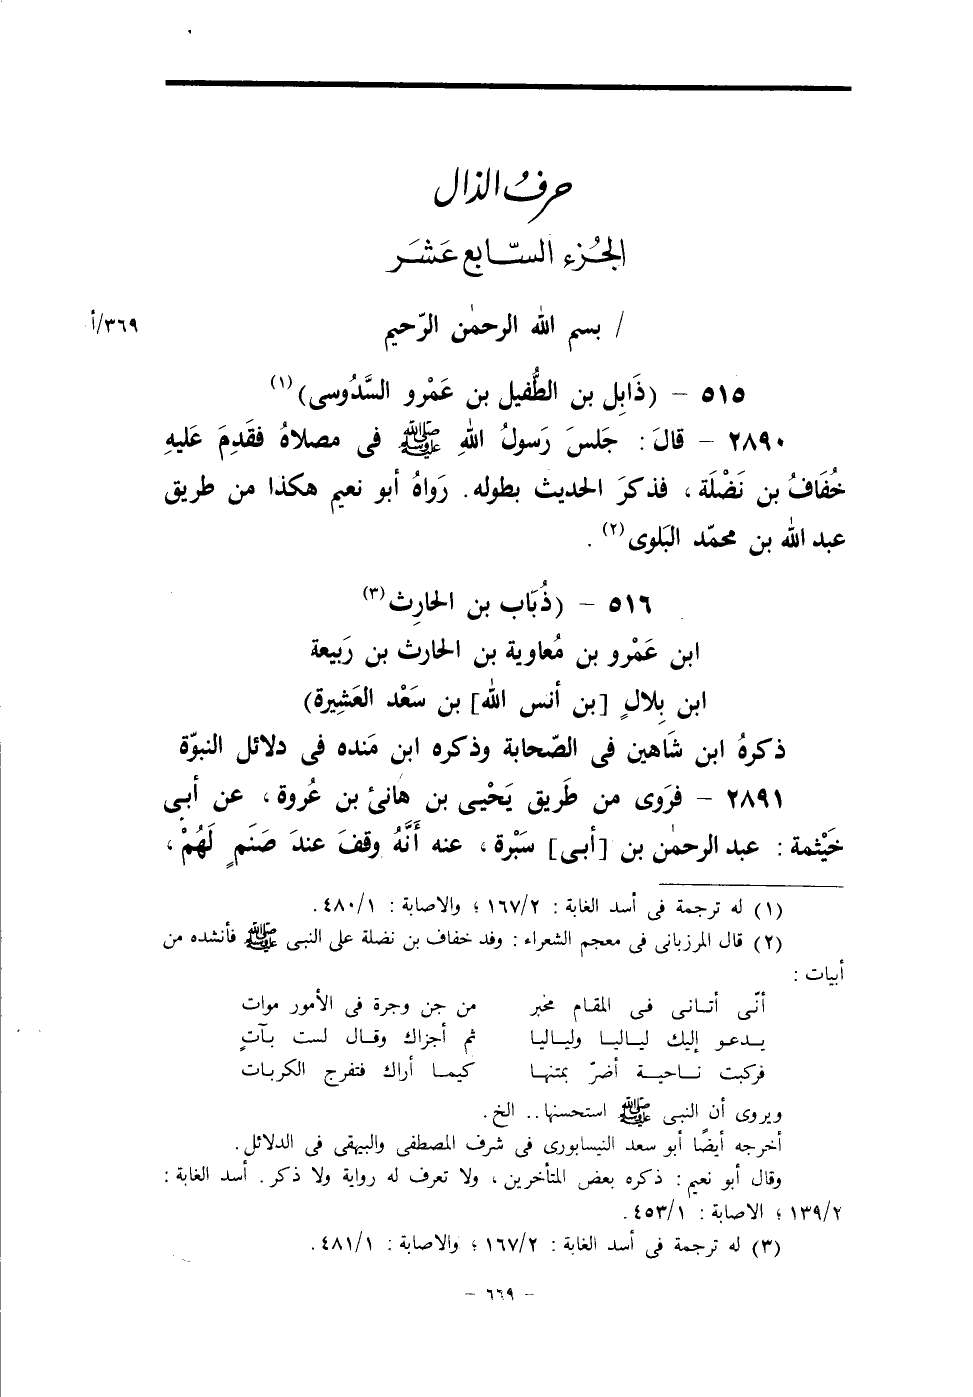 حرف الذال
الجُزء السّابع عَشَر
/ بسم الله الرحمٰن الرّحيم
٣٦٩/أ
٥١٥ – (ذَابِل بن الطُّفيل بن عَمْرو السَّدُوسى)(١)
٢٨٩٠ – قالَ : جَلسَ رَسولُ اللهِ ﷺ فى مصلاهُ فقَدِمَ عَليهِ
خُفَافُ بن نَضْلَة ، فذكرَ الحديث بطوله. رَواهُ أبو نعيم هكذا من طريق
عبد الله بن محمّد البَلوى(٢) .
٥١٦ – (ذُبَاب بن الحارِث(٣)
ابن عَمْرو بن مُعاوية بن الحارث بن رَبيعة
ابن بِلالٍ [بن أنس الله] بن سَعْد العَشِيرة)
ذكرهُ ابن شَاهين فى الصّحابة وذكره ابن مَنده فى دلائل النبوّة
٢٨٩١ – فرَوى من طَريق يَحْيـى بن هَانئ بن عُروة، عن أبى
خَيْثمة : عبد الرحمٰن بن [أبـى] سَبْرة ، عنه أَنَّهُ وقفَ عندَ صَنَمٍ لَهُمْ ،
(١) له ترجمة فى أسد الغابة : ١٦٧/٢ ؛ والاصابة : ٤٨٠/١ .
(٢) قال المرزبانى فى معجم الشعراء : وفد خفاف بن نضلة على النبى ﷺ فأنشده من
أبيات :
أنّـى أتـانى فـى المقـام مخبر من جن وجرة فى الأمور موات
يـدعـو إليك ليـاليـا وليـاليا ثم أجزاك وقـال لست بـآتٍ
فركبت نـاحيـة أضرّ بمتنهـا كيمـا أراك فتفرج الكربـات
ويروى أن النبى ﷺ استحسنها.. الخ.
أخرجه أيضًا أبو سعد النيسابورى فى شرف المصطفى والبيهقى فى الدلائل.
وقال أبو نعيم : ذكره بعض المتأخرين ، ولا تعرف له رواية ولا ذكر. أسد الغابة :
١٣٩/٢ ؛ الاصابة : ٤٥٣/١ .
(٣) له ترجمة فى أسد الغابة : ١٦٧/٢ ؛ والاصابة : ٤٨١/١ .
– ٦٦٩ –